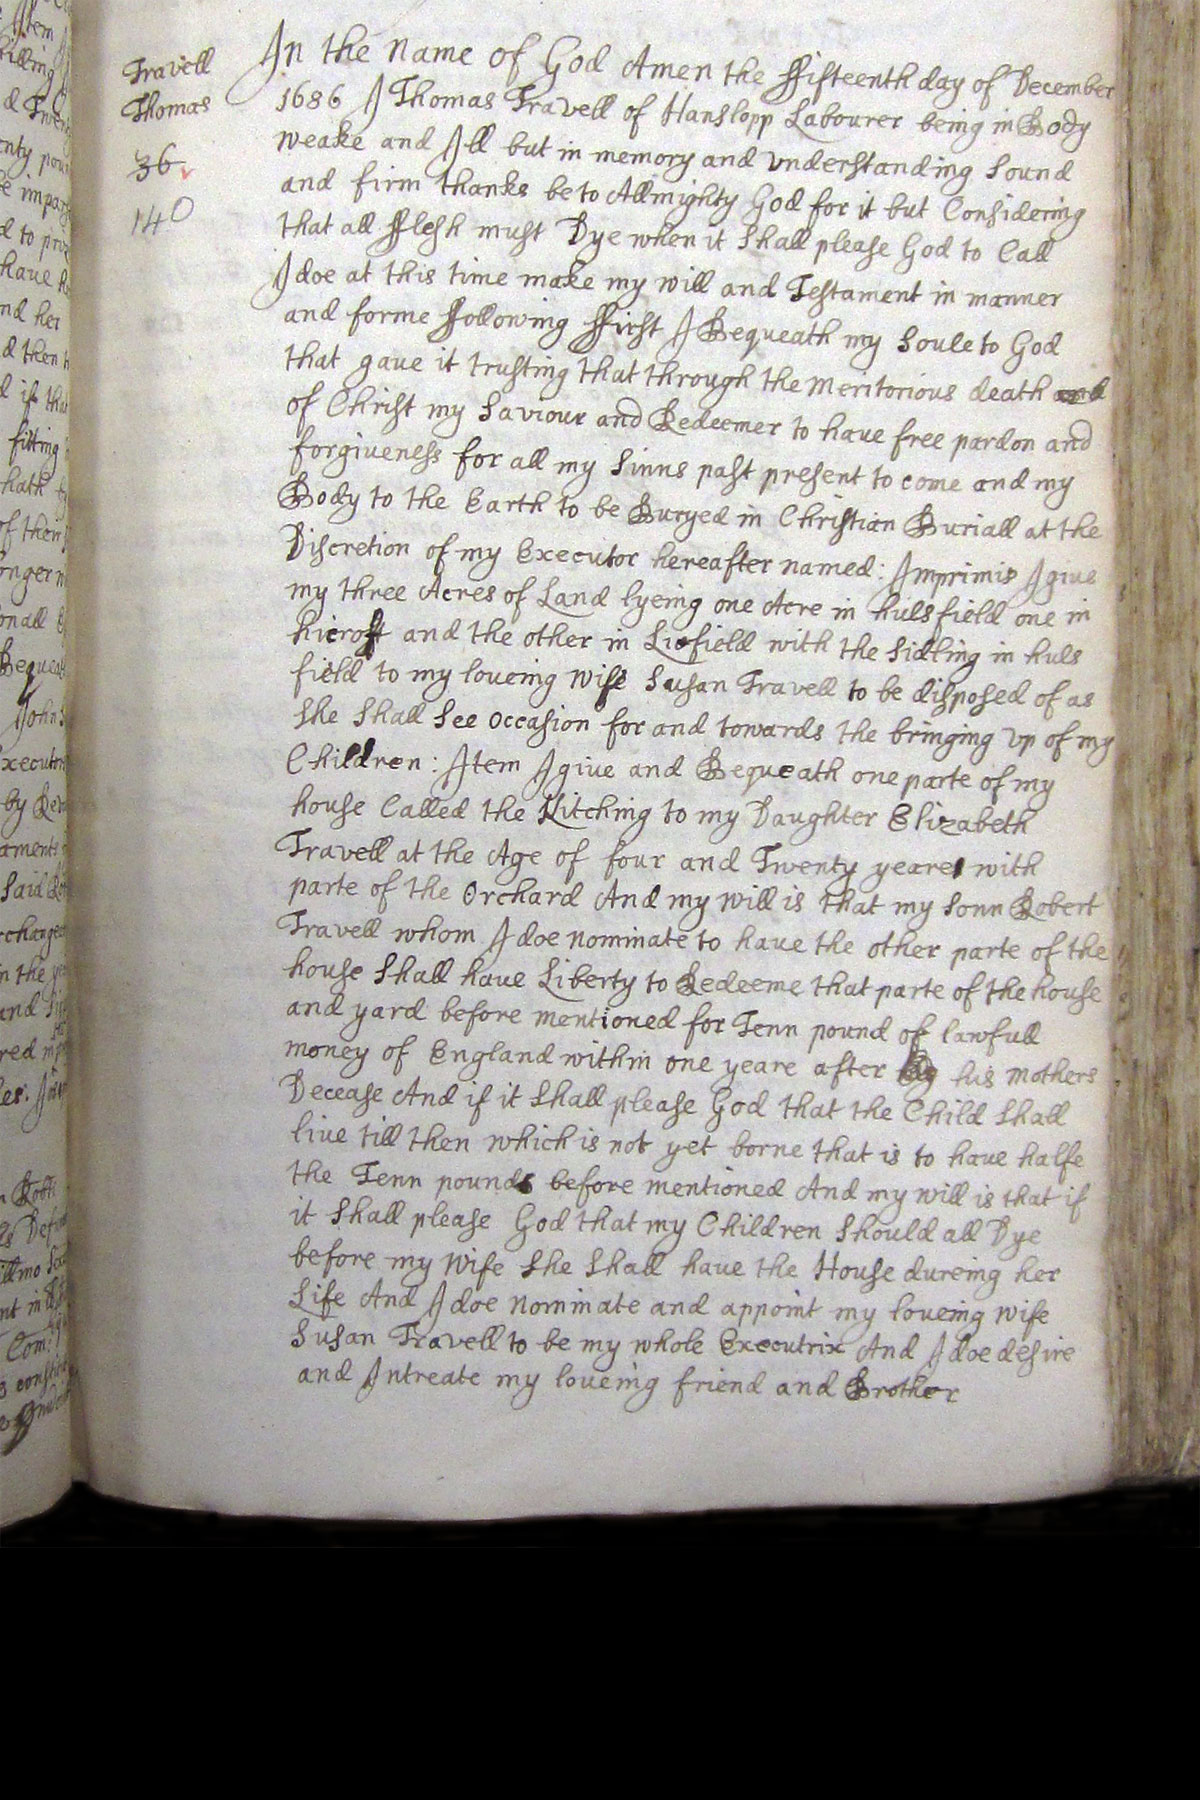 Travell
Thomas
36
140
In the Name of God Amen the ffifteenth day of December
1686 I Thomas Travell of Hanslopp Labourer being in Body
weake and Ill but in memory and vnderstanding Sound
and firm thanks be to Allmighty God for it but Considering
that all fflesh must Dye when it Shall please God to Call
I doe at this time make my will and Testament in manner
and forme ffollowing ffirst I Bequeath my Soule to God
that gave it trusting that through the meritorious death
of Christ my Saviour and Redeemer to have free pardon and
forgiveness for all my Sinns past present to come and my
Body to the Earth to be Buryed in Christian Buriall at the
Discretion of my Executor hereafter named: Imprimis I give
my three Acres of Land lyeing one Acre in hulsfield one in
hicroft and the other in field with the Sidling in huls
field to my loveing wife Susan Travell to be disposed of as
She Shall See occasion for and towards the bringing vp of my
Children: Item I give and Bequeath one parte of my
house Called the Kitching to my Daughter Elizabeth
Travell at the Age of four and Twenty yeares with
parte of the Orchard And my will is that my Sonn Robert
Travell whom I doe nominate to have the other parte of the
house Shall have Liberty to Redeeme that parte of the house
and yard before mentioned for Tenn pound of lawfull
money of England within one yeare after his mothers
Decease And if it Shall please God that the Child Shall
live till then which is not yet borne that is to have halfe
the Tenn pounds before mentioned And my will is that if
it Shall please God that my Children Should all Dye
before my wife She Shall have the House dureing her
Life And I doe nominate and appoint my loveing wife
Susan Travell to be my whole Executrix And I doe desire
and Intreate my loveing friend and Brother